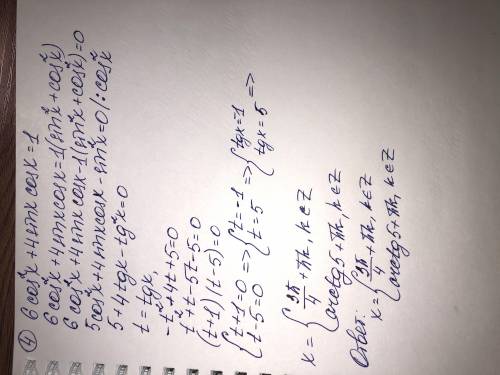 ④ 6cos²x+4sinxcosx=1
6cos²x+4sinxcosx=1(sin²x+cos²x)
6cos²x+4sinxcosx-1(sin²x+cos²x)=0
5cos²x+4sinxcosx-sin²x=0/:cos²x
5+4tgx-tg²x=0
t=tgx,
-t²+4t+5=0
t²+t-5t-5=0
(t+1)(t-5)=0
{t+1=0 => {t=-1 => {tgx=-1 =>
{t-5=0 {t=5 {tgx=5
x={3π/4+πk, k∈Z
{arctg5+πk, k∈Z
Ответ:
x={3π/4+πk, k∈Z
{arctg5+πk, k∈Z